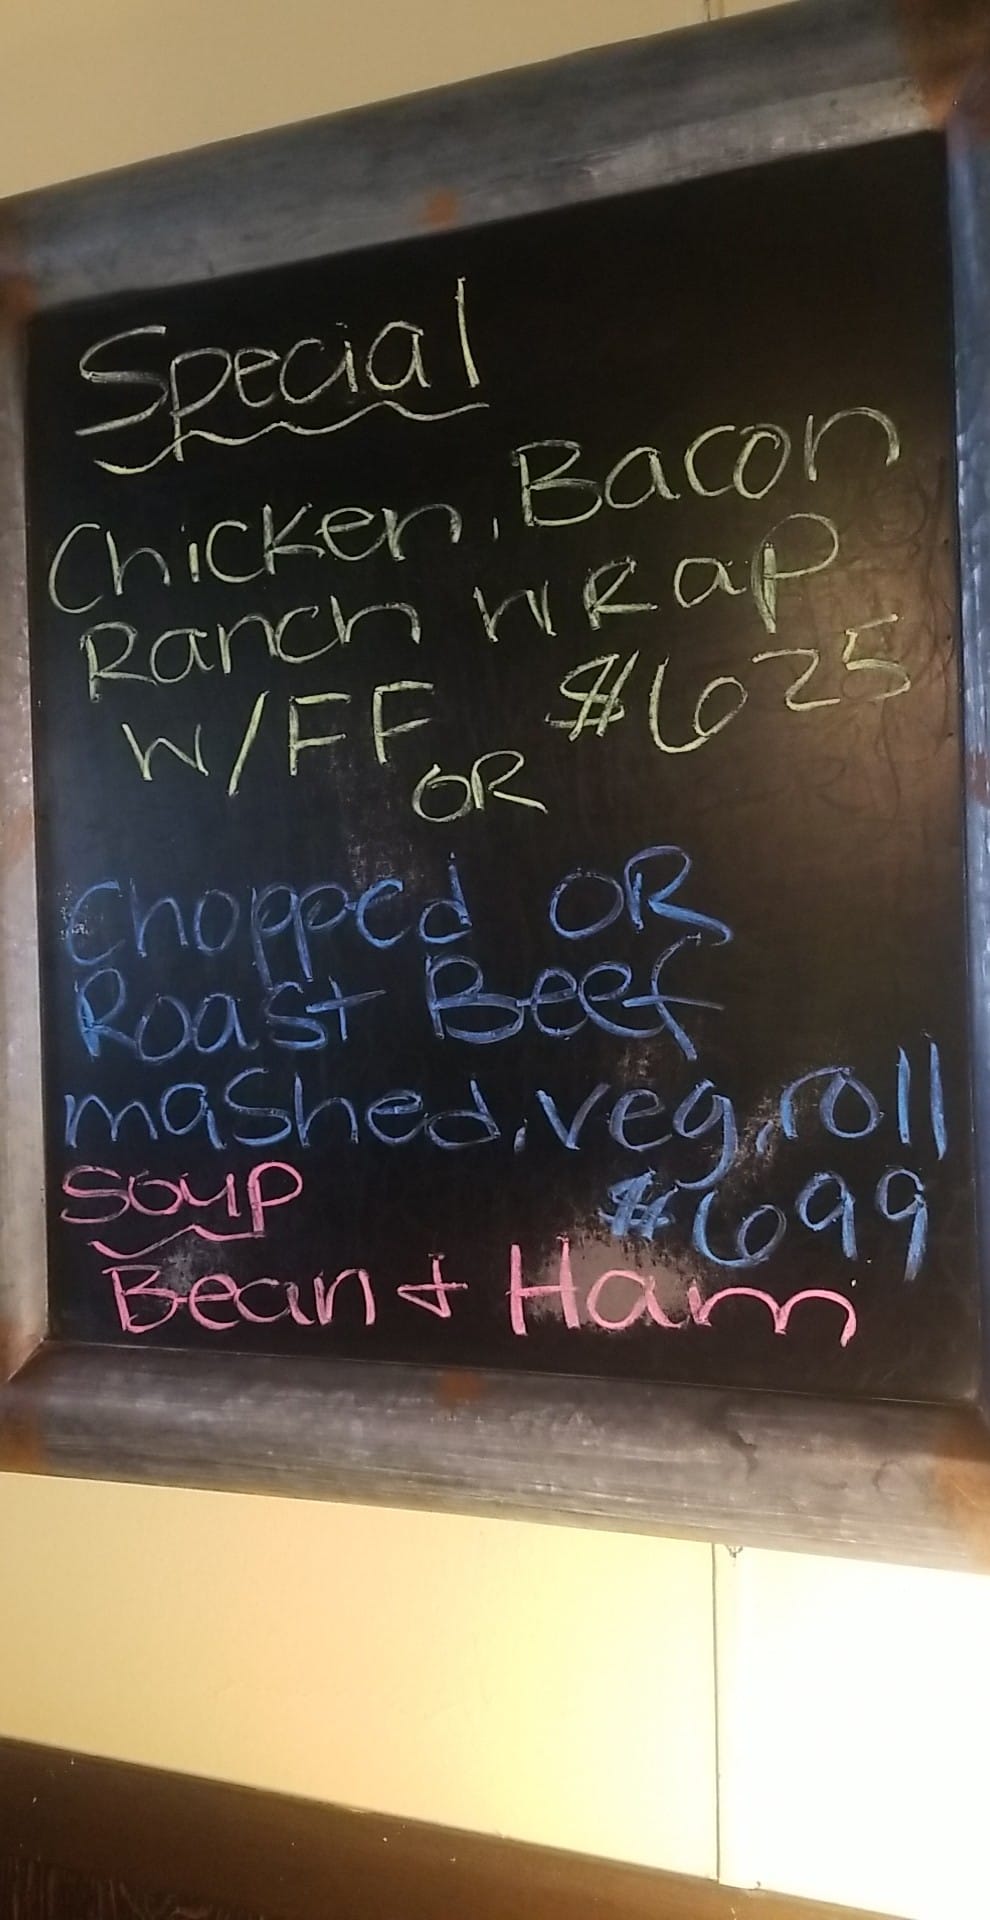 Special
Chicken, Bacon
Ranch WRaP
W/FF $625
OR
Chopped OR
Roast Beef
mashed, veg, roll
$699
Soup
Bean + Ham